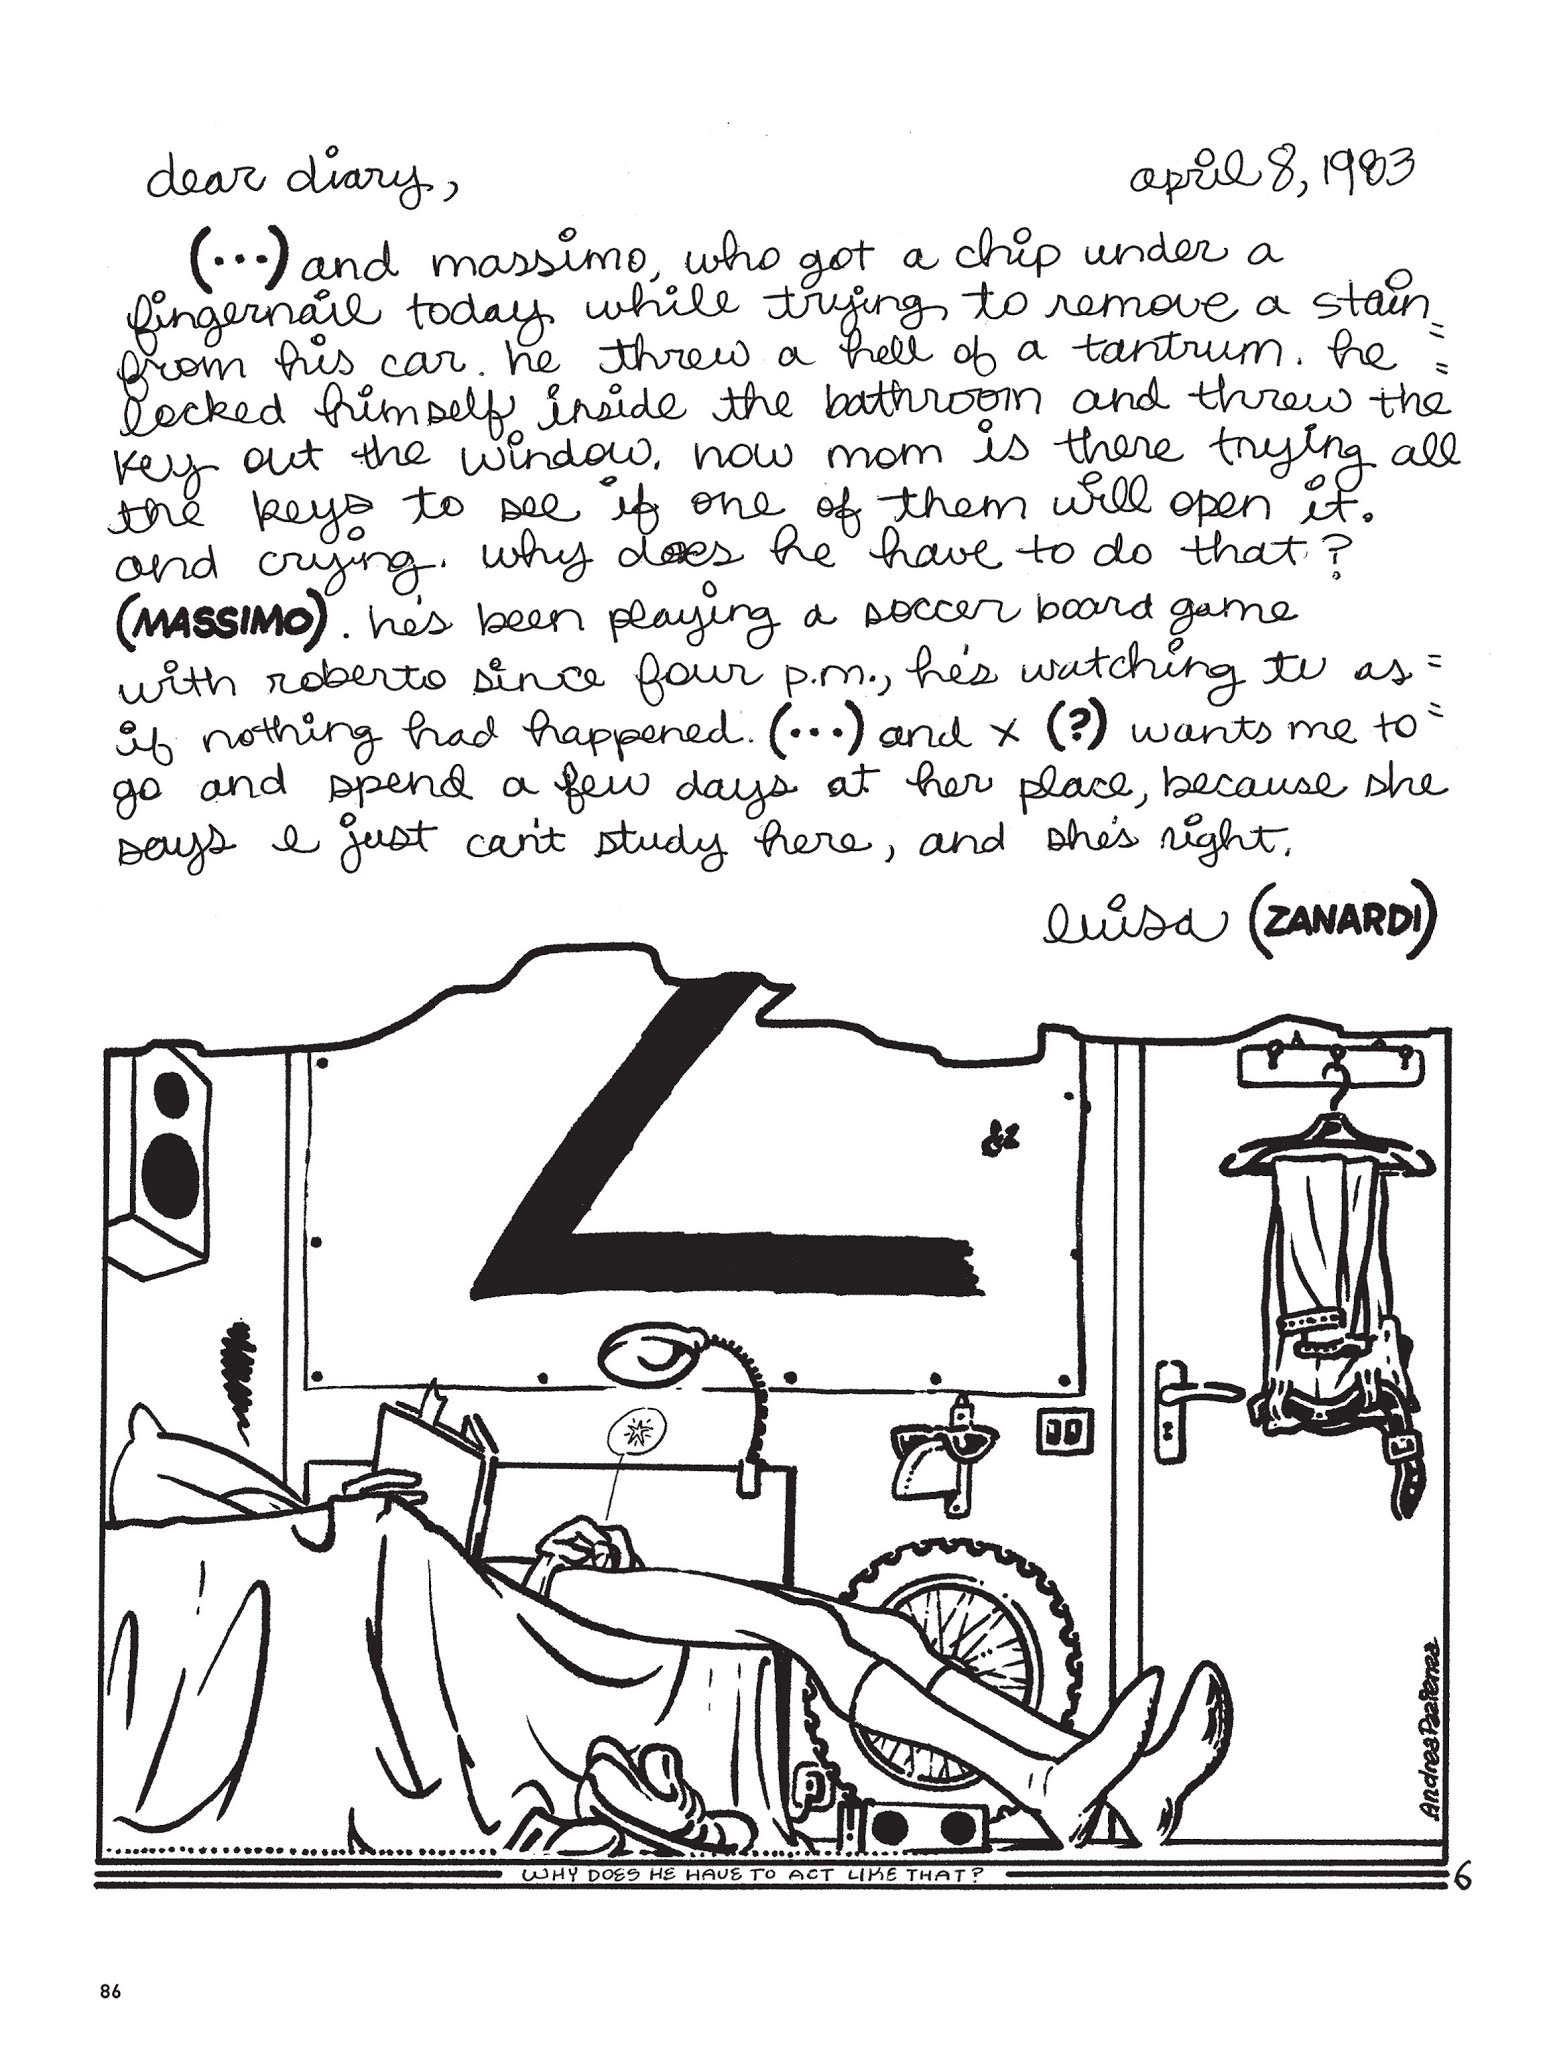 dear diary, april 8, 1983
(...) and massimo, who got a chip under a
fingernail today while trying to remove a stain
from his car. he threw a hell of a tantrum. he
locked himself inside the bathroom and threw the
key out the window. now mom is there trying all
the keys to see if one of them will open it.
and crying. why does he have to do that?
(MASSIMO). he's been playing a soccer board game
with roberto since four p.m., he's watching tv as
if nothing had happened. (...) and x (?) wants me to
go and spend a few days at her place, because she
says i just can't study here, and she's right.
luisa (ZANARDI)
Z
Andrea Pazienza
WHY DOES HE HAVE TO ACT LIKE THAT?
6
86